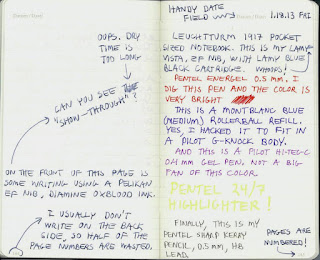 OOPS. DRY
TIME IS
TOO LONG
CAN YOU SEE THE
"SHOW-THROUGH"?
ON THE FRONT OF THIS PAGE IS
SOME WRITING USING A PELIKAN
EF NIB, DIAMINE OXBLOOD INK.
I USUALLY DON'T
WRITE ON THE BACK
SIDE, SO HALF OF THE
PAGE NUMBERS ARE WASTED.
HANDY DATE
FIELD
1.18.13 FRI
LEUCHTTURM 1917 POCKET
SIZED NOTEBOOK. THIS IS MY LAMY
VISTA, EF NIB, WITH LAMY BLUE
BLACK CARTRIDGE. WHOOPS!
PENTEL ENERGEL 0.5 MM. I
DIG THIS PEN AND THE COLOR IS
VERY BRIGHT
THIS IS A MONTBLANC BLUE
(MEDIUM) ROLLERBALL REFILL.
YES, I HACKED IT TO FIT IN
A PILOT G-KNOCK BODY.
AND THIS IS A PILOT HI-TEC-C
0.4 MM GEL PEN. NOT A BIG
FAN OF THIS COLOR.
PENTEL 24/7
HIGHLIGHTER!
FINALLY, THIS IS MY
PENTEL SHARP KERRY
PENCIL, 0.5 MM, HB
LEAD.
PAGES ARE
NUMBERED!